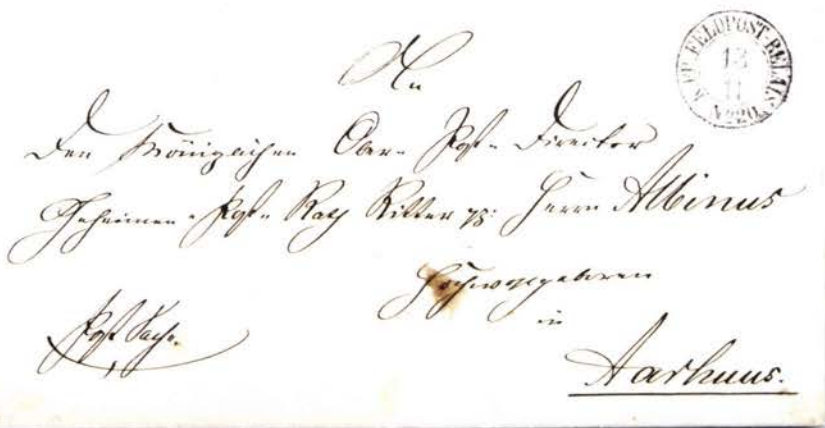 K. PR. FELDPOST-RELAIS
13
11
No 20.
An
Den Königlichen Ober-Post-Director
Geheimen-Post-Rath Ritter pp: Herrn Albinus
Hochwohlgeboren
in
Post Sache.
Aarhuus.